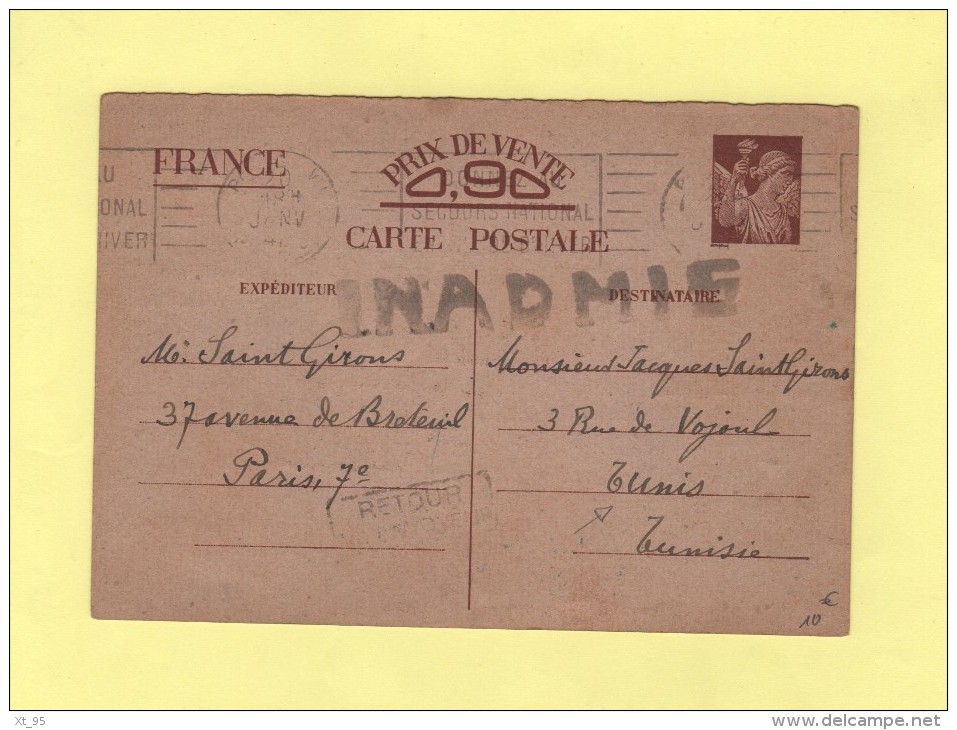 FRANCE
PRIX DE VENTE
0,90
CARTE POSTALE
AU
ONAL
HIVER
JANV
41
DONNEZ
SECOURS NATIONAL
INADMIS
EXPÉDITEUR
DESTINATAIRE
Mr. Saint Girons
37 avenue de Breteuil
Paris, 7e
RETOUR
Monsieur Jacques Saint Girons
3 Rue de Vojoul
Tunis
Tunisie
10 €
Xt_95
www.delcampe.net